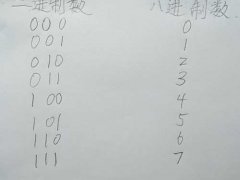 二进制数 八进制数
000 0
001 1
010 2
011 3
100 4
101 5
110 6
111 7